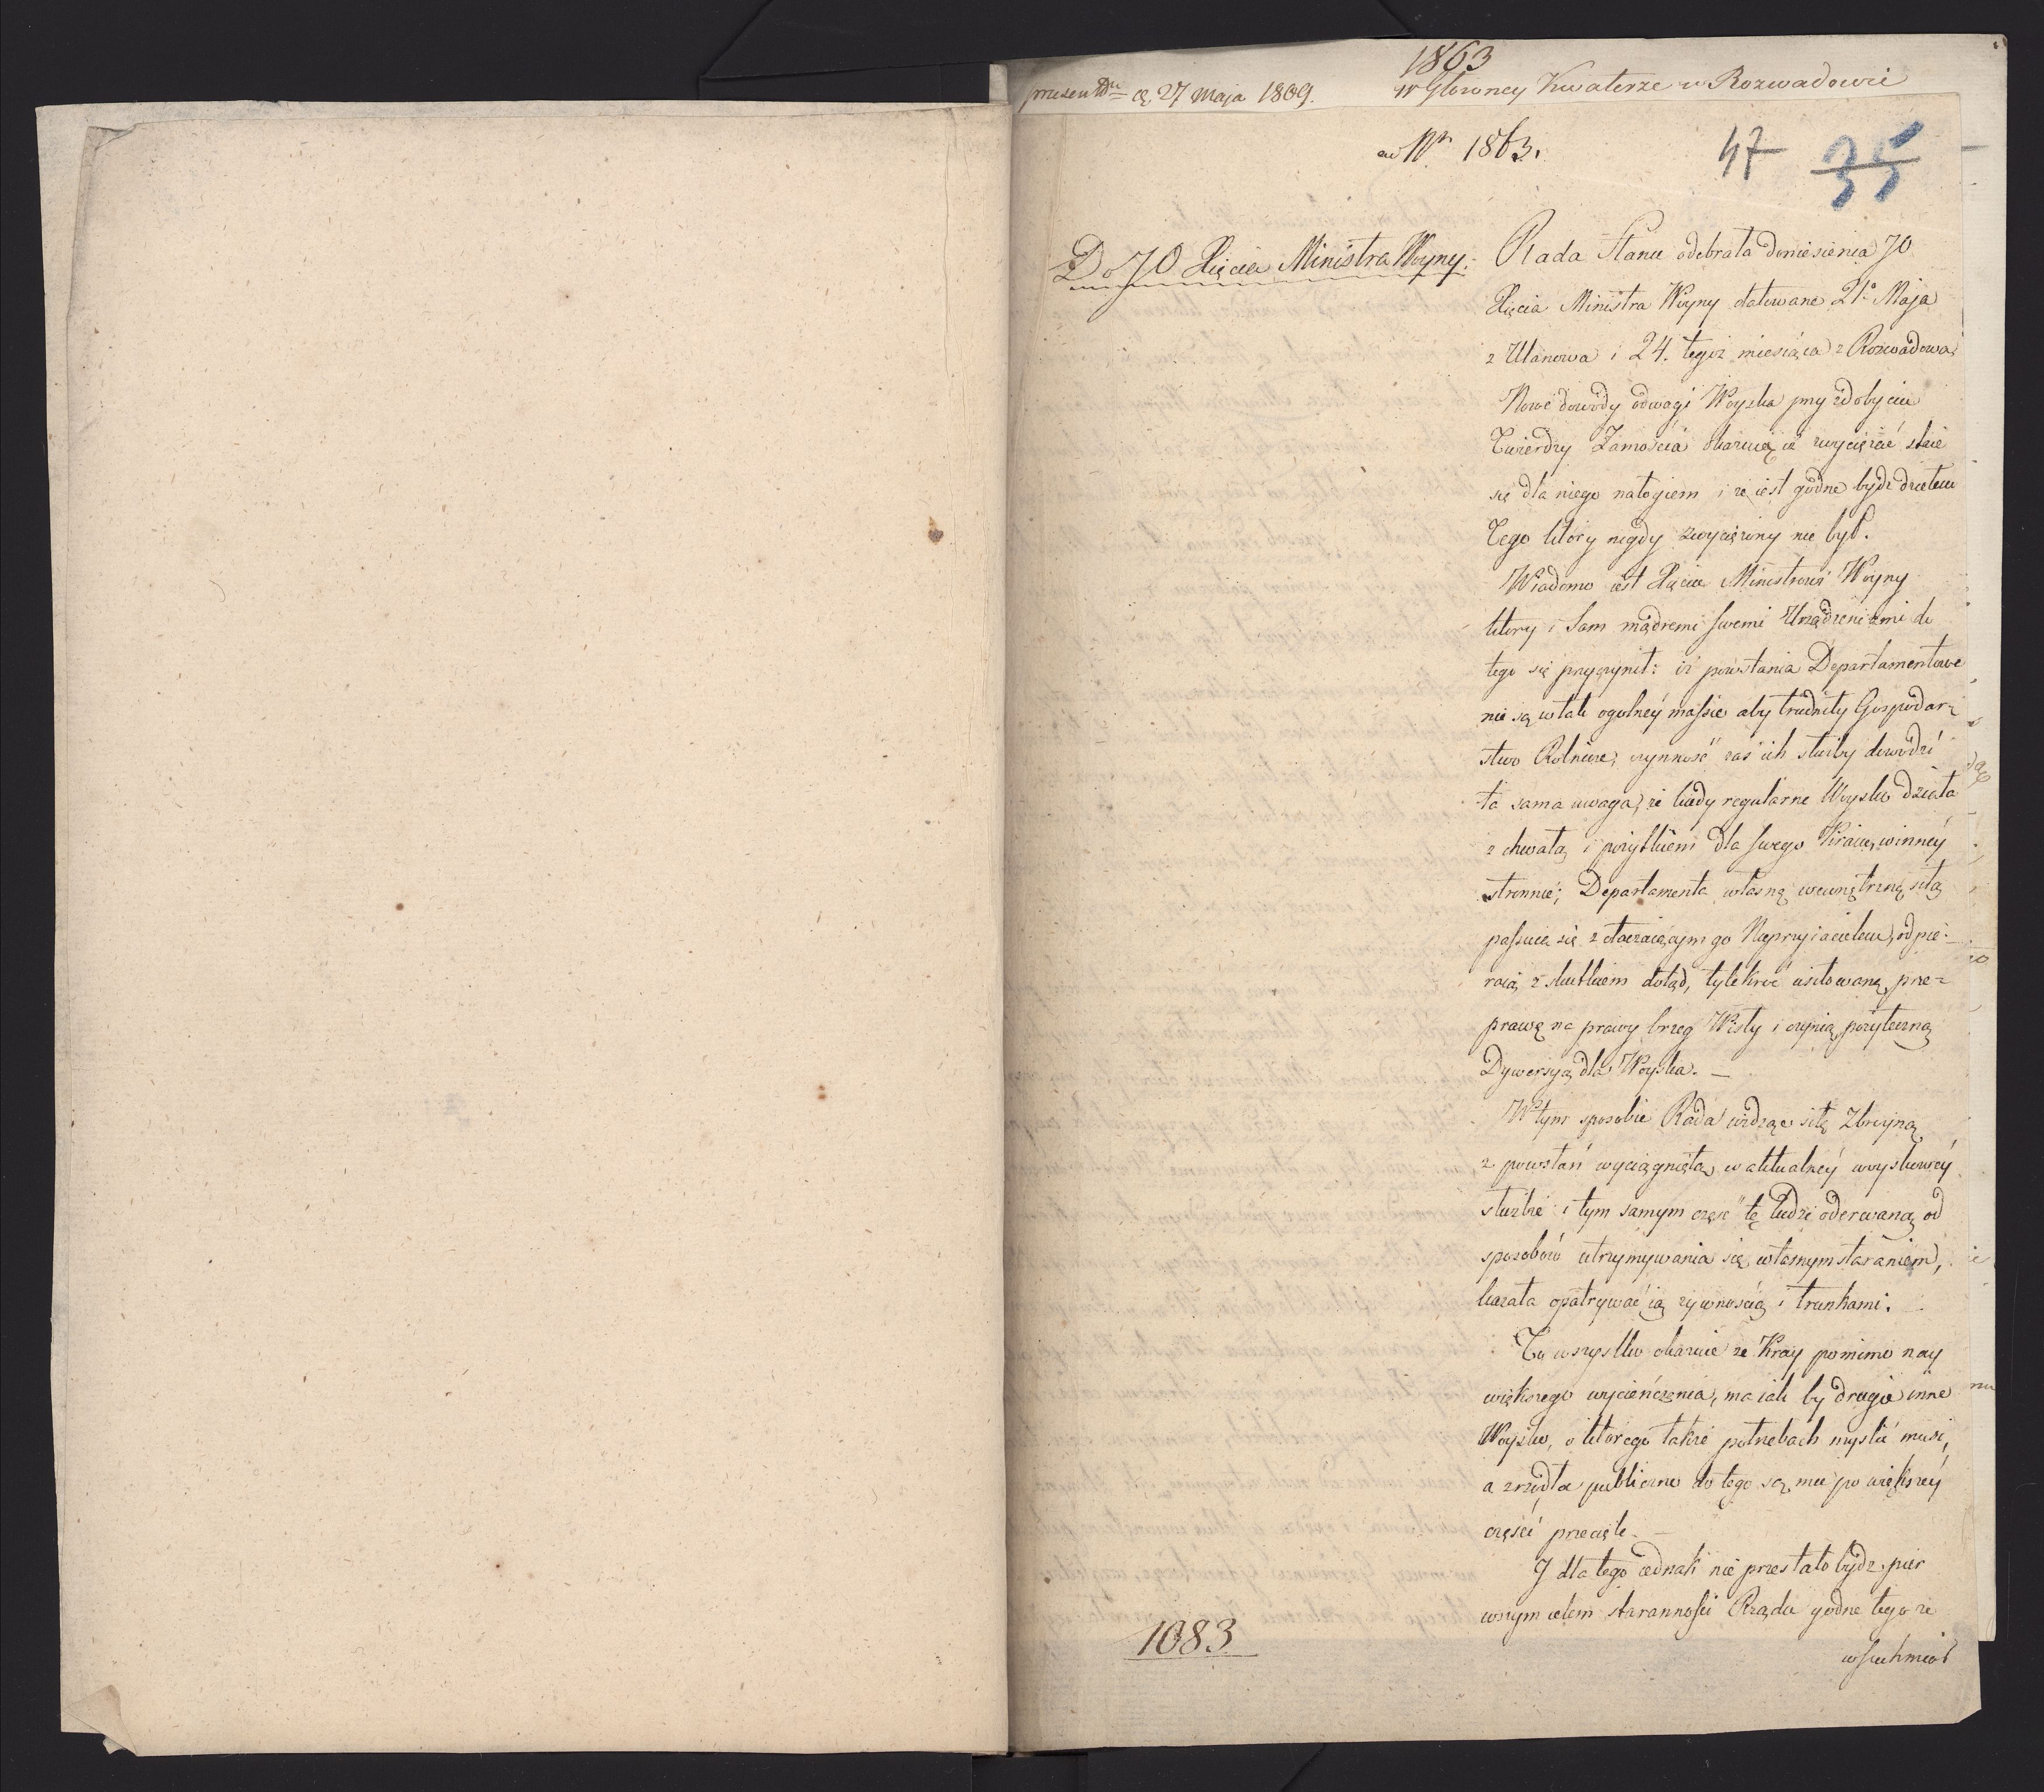 1863
præsent. Du: 27 Maja 1809. w Głowney Kwaterze w Rozwadowie
ad Nr 1863.
47 35
Do JO Xięcia Ministra Woyny.
Rada Stanu odebrała doniesienia JO
Xięcia Ministra Woyny datowane 21o Maja
z Ulanowa i 24. tegoż miesiąca z Rozwadowa.
Nowe dowody odwagi Woyska przy zdobyciu
Twierdzy Zamościa okazuią iż zwyciężać staie
się dla niego nałogiem i że iest godne bydź dziełem
Tego który nigdy zwyciężony nie był.
Wiadomo iest Xięciu Ministrowi Woyny
który i Sam mądremi swemi Urządzeniami do
tego się przyczynił: iż powstania Departamentowe
nie są w tak ogulney massie aby trudniły Gospodar-
stwo Rolnicze, czynność zaś ich służby dowodzi
ta sama uwaga, że kiedy regularne Woysko działa
z chwałą i pożytkiem dla swego Kraiu, w inney
stronnie; Departamenta własną wewnętrzną siłą
passuią się z otaczaiącym go Nieprzyiacielem, odpie-
raią z skutkiem dotąd, tylekroć usiłowaną prze-
prawę na prawy brzeg Wisły i czynią pożyteczną
Dywersyą dla Woyska. —
W tym sposobie Rada widząc siłę Zbroyną
z powstań wyciągniętą w aktualney woyskowey
służbie i tym samym część tę ludzi oderwaną od
sposobów utrzymywania się własnym staraniem,
kazała opatrywać ią żywnością i trunkami.
To wszystko okazuie że Kray pomimo nay
większego wycieńczenia, ma iak by drugie inne
Woysko, o którego także potrzebach myślić musi,
a zrzódła publiczne do tego są mu po większey
części przecięte. —
I dla tego iednak nie przestało bydź pier
wszym celem staranności Rządu godne tego ze
wszechmiar
1083